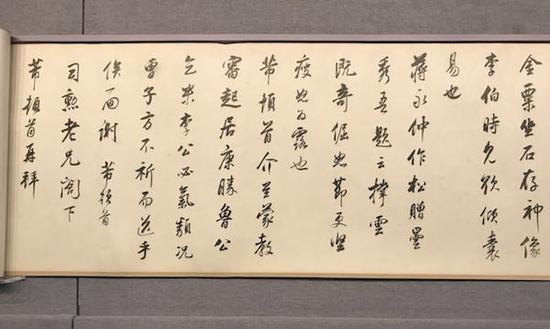 金粟坐石存神像
李伯時見欲傾囊
易也
蔣永仲作松贈墨
秀吾題云撐雲
既奇倔如節更堅
露也
芾頓首介至蒙教
審起居康勝魯公
乞米李公必氣類況
曹子方不祈而送乎
俟面謝 芾頓首
司勳老兄閣下
芾頓首再拜